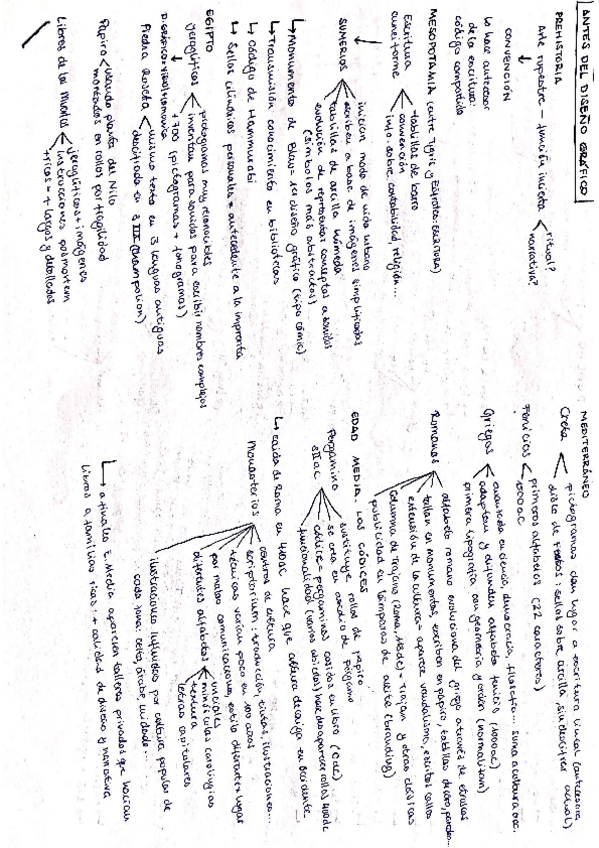 ANTES DEL DISEÑO GRÁFICO
PREHISTORIA
Arte rupestre — función incierta < ritual?
narrativa?
CONVENCIÓN
Lo hace antecesor
de la escritura:
código compartido
MESOPOTAMIA (entre Tigris y Eúfrates: ESCRITURA)
Escritura cuneiforme
tablillas de barro
convención
info. sobre contabilidad, religión...
SUMERIOS
inician modo de vida urbano
escriben a base de imágenes simplificadas
tablillas de arcilla húmeda
evolución de representar conceptos a sonidos
(símbolos más abstractos)
↳ Monumento de Blau = 1er diseño gráfico (tipo cómic)
↳ Transmisión conocimiento en bibliotecas
↳ Código de Hammurabi
↳ Sellos cilíndricos personales = antecedente a la imprenta
EGIPTO
Jeroglíficos
pictogramas muy reconocibles
inventan para sonidos para escribir nombres complejos
+700 (pictogramas + fonogramas)
Piedra Roseta
mismo texto en 3 lenguas antiguas
descifrada en S XIX (Champollion)
Papiro
usando planta del Nilo
montados en rollos por fragilidad
Libros de los Muertos
jeroglíficos + imágenes
instrucciones posmortem
+ ricos = + largos y detallados
MEDITERRÁNEO
Creta
pictogramas dan lugar a escritura lineal (antecesora
disco de Festos: sellos sobre arcilla, sin descifrar actual)
Fenicios
primeros alfabetos (22 caracteres)
1000aC
Griegos
avanzado en ciencia, democracia, filosofía... suma a cultura occ.
adaptan y difunden alfabeto fenicio (1000aC)
primera tipografía con geometría y orden (normalizan)
Romanos
alfabeto romano evoluciona del griego a través de etruscos
tallan en monumentos, escriben en papiro, tablillas de cera, paredes...
extensión de la cultura = aparece vandalismo, escritos callos
Columna de Trajano (Roma, 113dC) = Trajan y otras clásicas
publicidad en lámparas de aceite (branding)
EDAD MEDIA. LOS CÓDICES
Pergamino
SII aC
sustituye rollos de papiro
se crea en
códice = pergaminos cosidos en libro
funcionalidad (varios abiertos) hace desaparecer rollos 400dC
↳ caída de Roma en 400dC hace que cultura decaiga en occidente
Monasterios
centros de cultura
scriptorium: traducción, tintas, ilustraciones...
técnicas varían poco en 1000 años
por malas comunicaciones, estilo diferente x lugar
diferentes alfabetos
unciales
minúsculas carolingias
textura
letras capitulares
ilustraciones influidas por cultura popular de
cada zona: celta, árabe,
↳ a finales E. Media aparecen talleres privados que hacían
libros a familias ricas: + calidad de diseño y narrativa